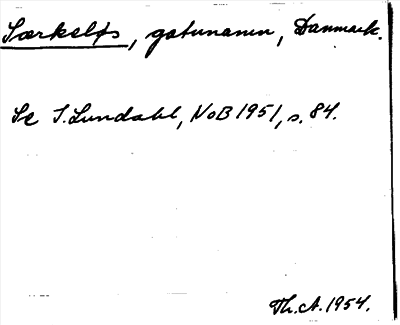 Særkeløs, gatunamn, Danmark.
Se I. Lundahl, NoB 1951, s. 84.
Th. A. 1954.